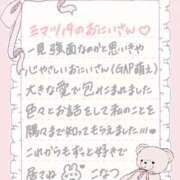 ミマツ19のおにいさん♡
一見強面なのかと思いきや
心やさしいおにいさん(GAP萌え)
大きな愛で包みこまれました
色々とお話をして私のことを
隅々まで知ってもらえました!!!
これからもずっと好きで
居てね こなつ